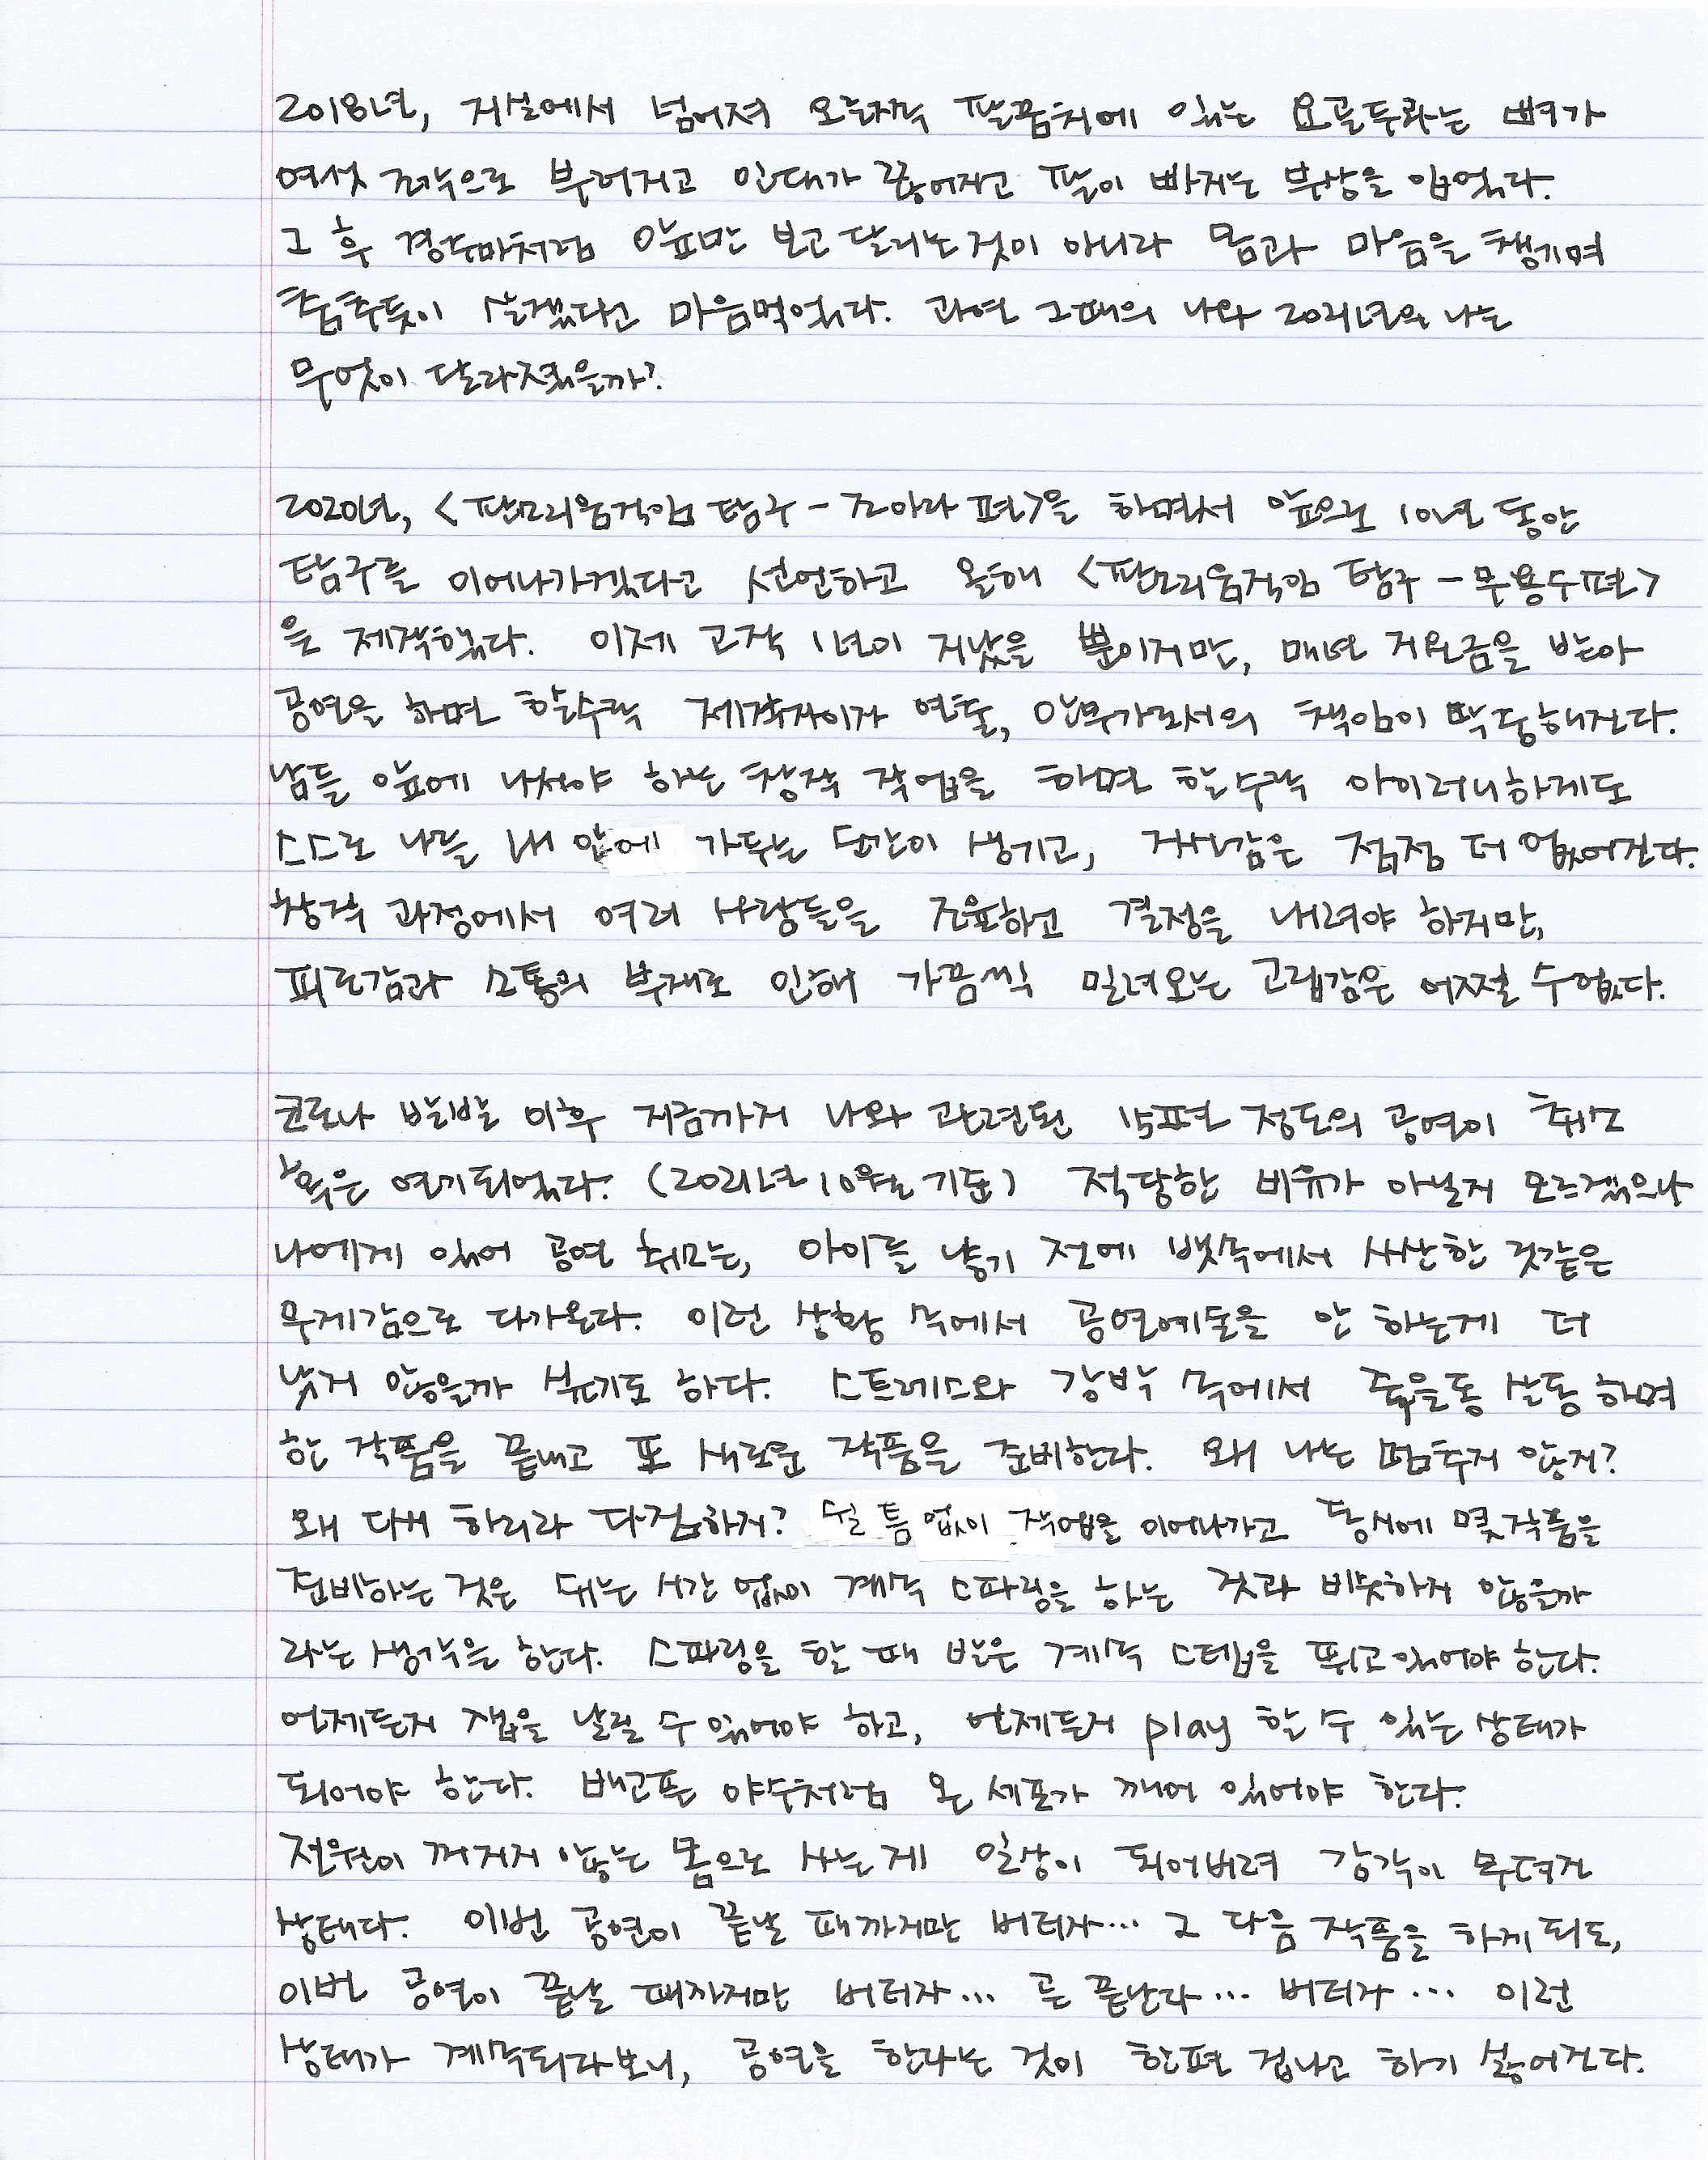 2018년, 거실에서 넘어져 오른쪽 팔꿈치에 있는 요골두라는 뼈가
여섯 조각으로 부러지고 인대가 끊어지고 팔이 빠지는 부상을 입었다.
그 후 경주마처럼 앞만 보고 달리는 것이 아니라 몸과 마음을 챙기며
춤추듯이 살겠다고 마음먹었다. 과연 그때의 나와 2021년의 나는
무엇이 달라졌을까?
2020년, <판소리움직임 탐구 - 조아라 편>을 하면서 앞으로 10년 동안
탐구를 이어나가겠다고 선언하고 올해 <판소리움직임 탐구 - 무용수편>
을 제작했다. 이제 고작 1년이 지났을 뿐이지만, 매년 지원금을 받아
공연을 하면 할수록 제작자이자 연출, 안무가로서의 책임이 막중해진다.
남들 앞에 나서야 하는 창작 작업을 하면 할수록 아이러니하게도
스스로 나를 내 안에 가두는 순간이 생기고, 자신감은 점점 더 없어진다.
창작 과정에서 여러 사람들을 조율하고 결정을 내려야 하지만,
피로감과 소통의 부재로 인해 가끔씩 밀려오는 고립감은 어쩔 수 없다.
코로나 발발 이후 지금까지 나와 관련된 15편 정도의 공연이 취소
혹은 연기되었다. (2021년 10월 기준) 적당한 비유가 아닐지 모르겠으나
나에게 있어 공연 취소는, 아이를 낳기 전에 뱃속에서 사산한 것같은
무게감으로 다가온다. 이런 상황 속에서 공연예술을 안 하는게 더
낫지 않을까 싶기도 하다. 스트레스와 강박 속에서 죽을동 살동 하며
한 작품을 끝내고 또 새로운 작품을 준비한다. 왜 나는 멈추지 않지?
왜 다시 하리라 다짐하지? 쉴 틈 없이 작업을 이어나가고 동시에 몇 작품을
준비하는 것은 쉬는 시간 없이 계속 스파링을 하는 것과 비슷하지 않을까
라는 생각을 한다. 스파링을 할 때 발은 계속 스텝을 뛰고 있어야 한다.
언제든지 잽을 날릴 수 있어야 하고, 언제든지 play 할 수 있는 상태가
되어야 한다. 배고픈 야수처럼 온 세포가 깨어 있어야 한다.
전원이 꺼지지 않는 몸으로 사는 게 일상이 되어버려 감각이 무뎌진
상태다. 이번 공연이 끝날 때까지만 버티자... 그 다음 작품을 하게 되도,
이번 공연이 끝날 때까지만 버티자... 곧 끝난다... 버티자... 이런
상태가 계속되다보니, 공연을 한다는 것이 한편 겁나고 하기 싫어진다.